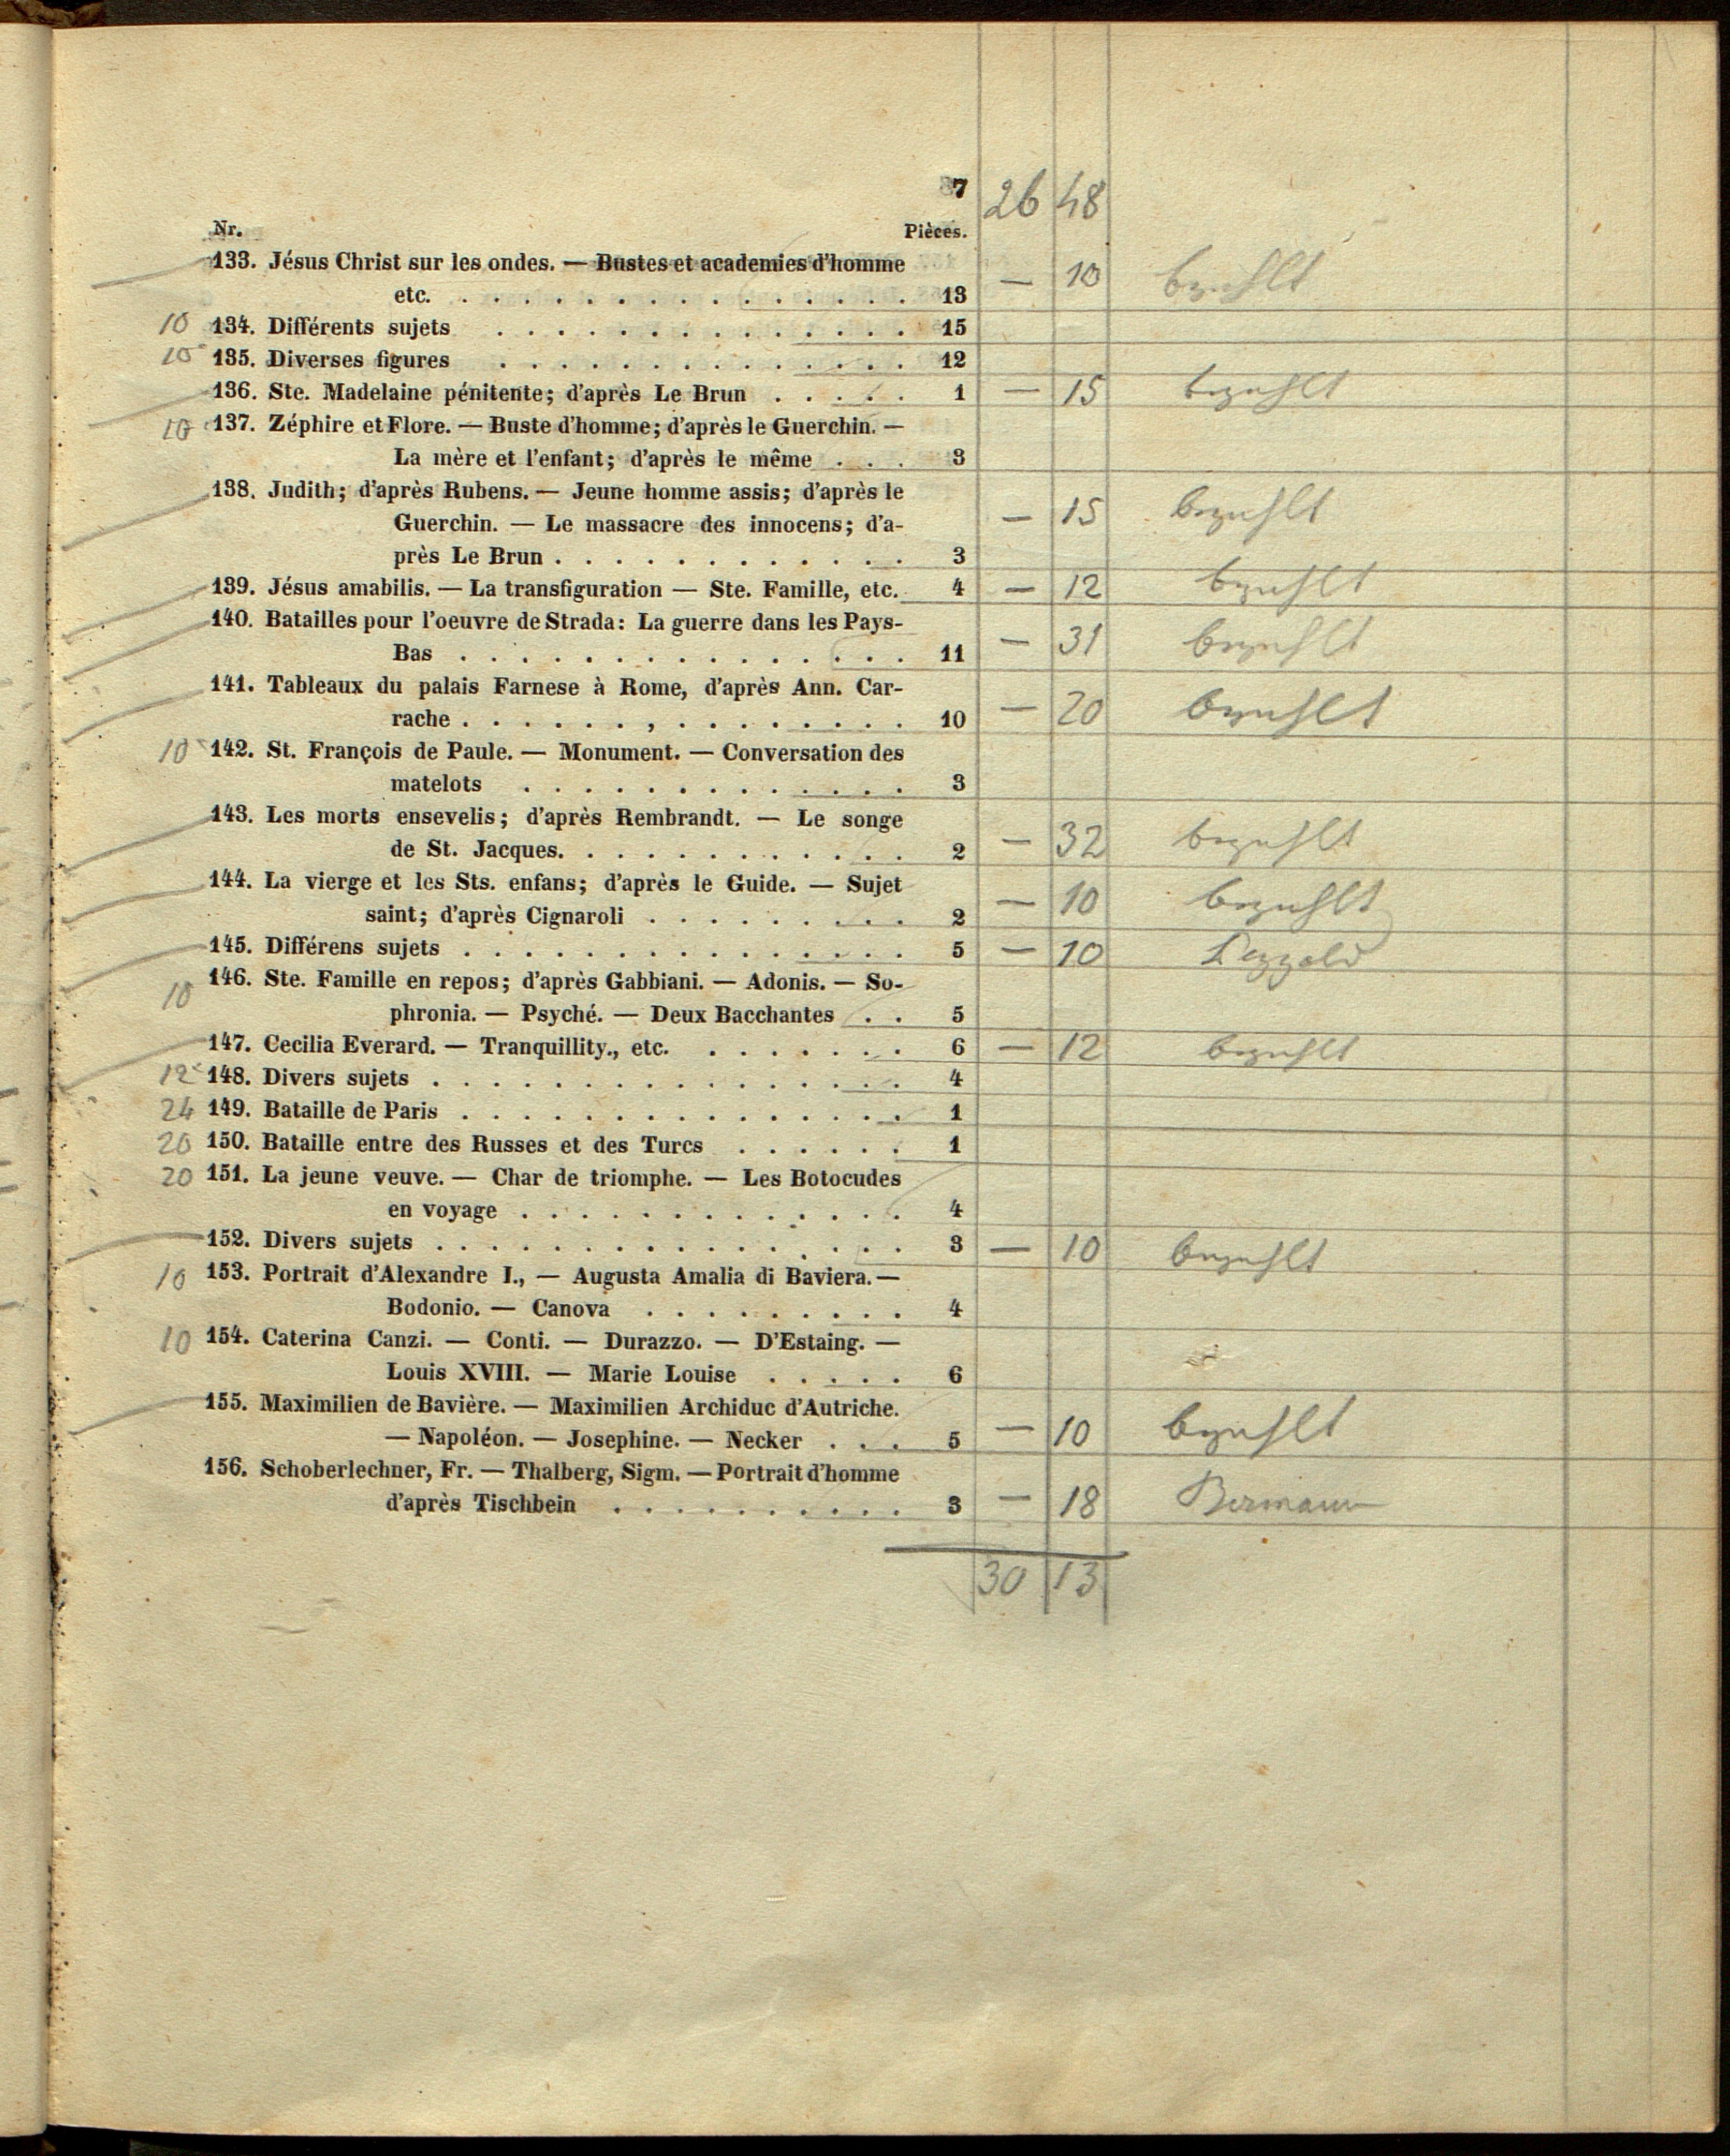 7 26 48
Nr. Pièces.
133. Jésus Christ sur les ondes. — Bustes et academies d'homme
etc. . . . . . . . . . . . . . . . 13 — 10 bezahlt
10 134. Différents sujets . . . . . . . . . . . . . . 15
10 135. Diverses figures . . . . . . . . . . . . . . 12
136. Ste. Madelaine pénitente; d'après Le Brun . . . . . 1 — 15 bezahlt
10 137. Zéphire et Flore. — Buste d'homme; d'après le Guerchin. —
La mère et l'enfant; d'après le même . . . 3
138. Judith; d'après Rubens. — Jeune homme assis; d'après le
Guerchin. — Le massacre des innocens; d'a- — 15 bezahlt
près Le Brun . . . . . . . . . . . . 3
139. Jésus amabilis. — La transfiguration — Ste. Famille, etc. 4 — 12 bezahlt
140. Batailles pour l'oeuvre de Strada: La guerre dans les Pays-
Bas . . . . . . . . . . . . . . . 11 — 31 bezahlt
141. Tableaux du palais Farnese à Rome, d'après Ann. Car-
rache . . . . . . , . . . . . . . . 10 — 20 bezahlt
10 142. St. François de Paule. — Monument. — Conversation des
matelots . . . . . . . . . . . . . 3
143. Les morts ensevelis; d'après Rembrandt. — Le songe
de St. Jacques. . . . . . . . . . . . 2 — 32 bezahlt
144. La vierge et les Sts. enfans; d'après le Guide. — Sujet
saint; d'après Cignaroli . . . . . . . . . 2 — 10 bezahlt
145. Différens sujets . . . . . . . . . . . . . . . 5 — 10
10 146. Ste. Famille en repos; d'après Gabbiani. — Adonis. — So-
phronia. — Psyché. — Deux Bacchantes . . 5
147. Cecilia Everard. — Tranquillity., etc. . . . . . . . 6 — 12 bezahlt
12 148. Divers sujets . . . . . . . . . . . . . . . . 4
24 149. Bataille de Paris . . . . . . . . . . . . . . . 1
20 150. Bataille entre des Russes et des Turcs . . . . . . 1
20 151. La jeune veuve. — Char de triomphe. — Les Botocudes
en voyage . . . . . . . . . . . . . 4
152. Divers sujets . . . . . . . . . . . . . . . . 3 — 10 bezahlt
10 153. Portrait d'Alexandre I., — Augusta Amalia di Baviera. —
Bodonio. — Canova . . . . . . . . . 4
10 154. Caterina Canzi. — Conti. — Durazzo. — D'Estaing. —
Louis XVIII. — Marie Louise . . . . . 6
155. Maximilien de Bavière. — Maximilien Archiduc d'Autriche.
— Napoléon. — Josephine. — Necker . . . 5 — 10 bezahlt
156. Schoberlechner, Fr. — Thalberg, Sigm. — Portrait d'homme
d'après Tischbein . . . . . . . . . . 3 — 18 Bermann
30 13